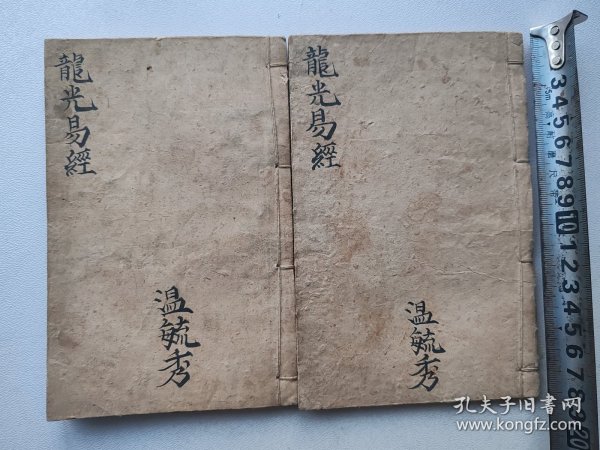 龍光易經
温毓秀
龍光易經
温毓秀
3 4 5 6 7 8 9 10 1 2 3 4 5 6 7 8 9 20
孔夫子旧书网
www.kongfz.com